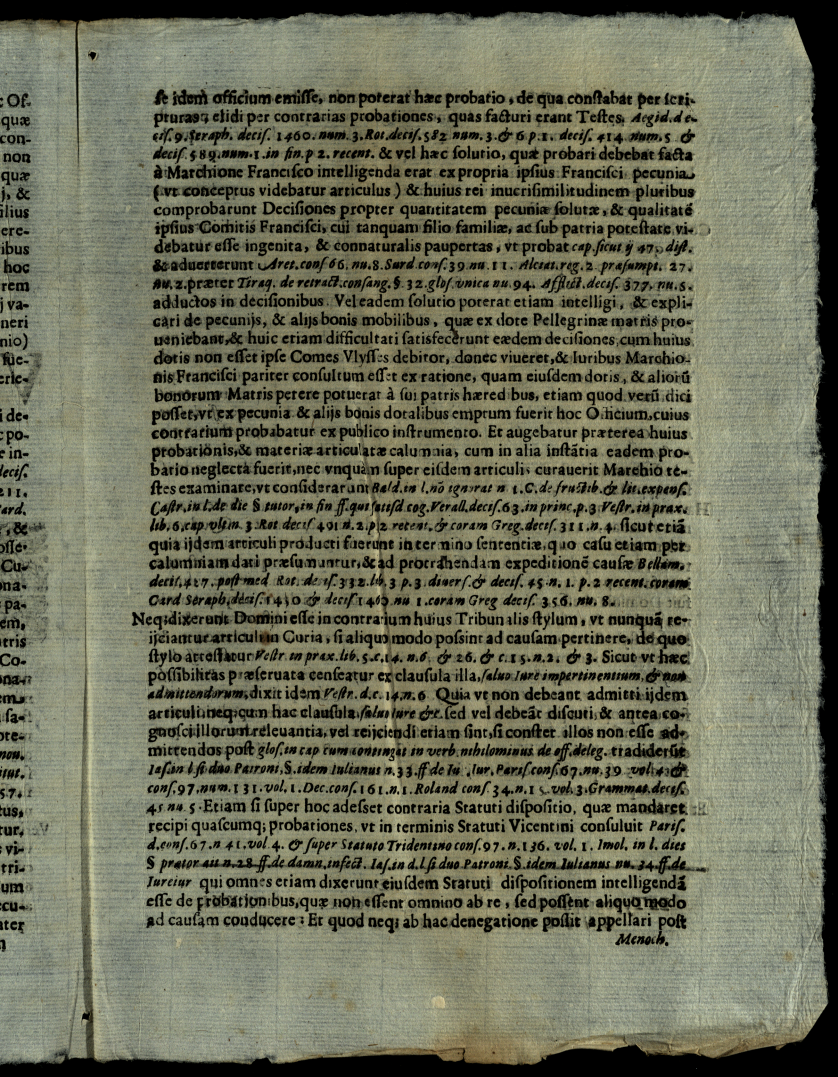 : Of-
quæ
con-
non
quæ
j, &
filius
ere-
ibus
hoc
rem
j va-
neri
nio)
fue-
erie-
i de-
c po-
e in-
decis.
211.
ard.
, &
osse-
Cu-
ona-
pa-
em,
atris
Co-
ona-
em
sa-
ote-
non.
itut.
57.
tus,
tur,
vi-
tri-
um
ecu-
nter
se idem officium emisse, non poterat hæc probatio, de qua constabat per scri-
pturas; elidi per contrarias probationes, quas facturi erant Testes. Aegid. de-
cis. 9. Seraph. decis. 1460. num. 3. Rot. decis. 582 num. 3. & 6 p. 1. decis. 414 num. 5 &
decis. 589. num. 1. in fin. p 2. recent. & vel hæc solutio, quæ probari debebat facta
à Marchione Francisco intelligenda erat ex propria ipsius Francisci pecunia
( vt conceptus videbatur articulus ) & huius rei inuerisimilitudinem pluribus
comprobarunt Decisiones propter quantitatem pecuniæ solutæ, & qualitatē
ipsius Comitis Francisci, cui tanquam filio familiæ, ac sub patria potestate vi-
debatur esse ingenita, & connaturalis paupertas, vt probat cap. sicut ij 47. dist.
& aduerterunt Aret. cons 66. nu. 8. Surd. cons. 39 nu. 11. Alciat. reg. 2 præsumpt. 27.
nu. 2. præter Tiraq. de retract. consang. §. 32. glos. vnica nu. 94. Afflict. decis. 377. nu. 5.
adductos in decisionibus. Vel eadem solutio poterat etiam intelligi, & expli-
cari de pecunijs, & alijs bonis mobilibus, quæ ex dote Pellegrinæ matris pro-
ueniebant, & huic etiam difficultati satisfecerunt eædem decisiones, cum huius
dotis non esset ipse Comes Vlysses debitor, donec viueret, & Iuribus Marchio-
nis Francisci pariter consultum esset ex ratione, quam eiusdem dotis, & alioru̅
bonorum Matris petere potuerat à sui patris hæred bus, etiam quod verū dici
posset, vt ex pecunia & alijs bonis dotalibus emptum fuerit hoc Officium, cuius
contrarium probabatur ex publico instrumento. Et augebatur præterea huius
probationis, & materiæ articulatæ calumnia, cum in alia instātia eadem pro-
batio neglecta fuerit, nec vnquam super eisdem articulis curauerit Marchio te-
stes examinare, vt considerarunt Bald. in l. nō ignorat n 1. C. de fructib. & lit. expens.
Castr. in l. de die § tutor, in fin ff. qui satisd cog. Verall. decis. 63. in princ. p. 3 Vestr. in prax.
lib. 6. cap. vltim. 3. Rot decis 491 n. 2. p 2 recent. & coram Greg. decis. 311 n. 4. sicut etiā
quia ijdem articuli producti fuerunt in termino sententiæ, quo casu etiam per
calumniam dati præsumuntur, & ad protrahendam expeditionē causæ Bellam.
decis. 427. post med Rot. decis. 332. lib. 3 p. 3. diuers. & decis. 45 n. 1. p. 2 recent. coram
Card Seraph. decis. 1450 & decis 1460 nu 1. coram Greg decis. 356. nu. 8.
Neq; dixerunt Domini esse in contrarium huius Tribunalis stylum, vt nunquā re-
ijciantur articuli in Curia, si aliquo modo possint ad causam pertinere, de quo
stylo attestatur Vestr. in prax. lib. 5. c. 14. n. 6. & 26. & c. 15. n. 2. & 3. Sicut vt hæc
possibilitas præseruata censeatur ex clausula illa, saluo Iure impertinentium, & non
admittendorum, dixit idem Vestr. d. c. 14. n. 6 Quia vt non debeant admitti ijdem
articuli neq; cum hac clausula, saluo iure &c. sed vel debeāt discuti, & antea co-
gnosci illorum releuantia, vel reijciendi etiam sint, si constet illos non esse ad-
mittendos post glos. in cap cum contingat in verb. nihilominus de off. deleg. tradiderūt
Ias. in l si duo Patroni, §. idem Iulianus n. 33. ff de Iu . Iur. Paris. cons. 67. nu. 39 vol. 4. &
cons. 97. num. 131. vol. 1. Dec. cons. 161. n. 1. Roland cons. 34. n. 15. vol. 3. Grammat. decis.
45 nu 5. Etiam si super hoc adesset contraria Statuti dispositio, quæ mandaret
recipi quascumq; probationes, vt in terminis Statuti Vicentini consuluit Paris.
d. cons. 67. n 41. vol. 4. & super Statuto Tridentino cons. 97. n. 136. vol. 1. Imol. in l. dies
§ prætor ait n. 28. ff. de damn. infect. Ias. in d. l si duo Patroni. §. idem Iulianus nu. 34. ff. de
Iureiur qui omnes etiam dixerunt eiusdem Statuti dispositionem intelligendā
esse de probationibus, quæ non essent omnino ab re, sed possent aliquo modo
ad causam conducere: Et quod neq; ab hac denegatione possit appellari post
Menoch.